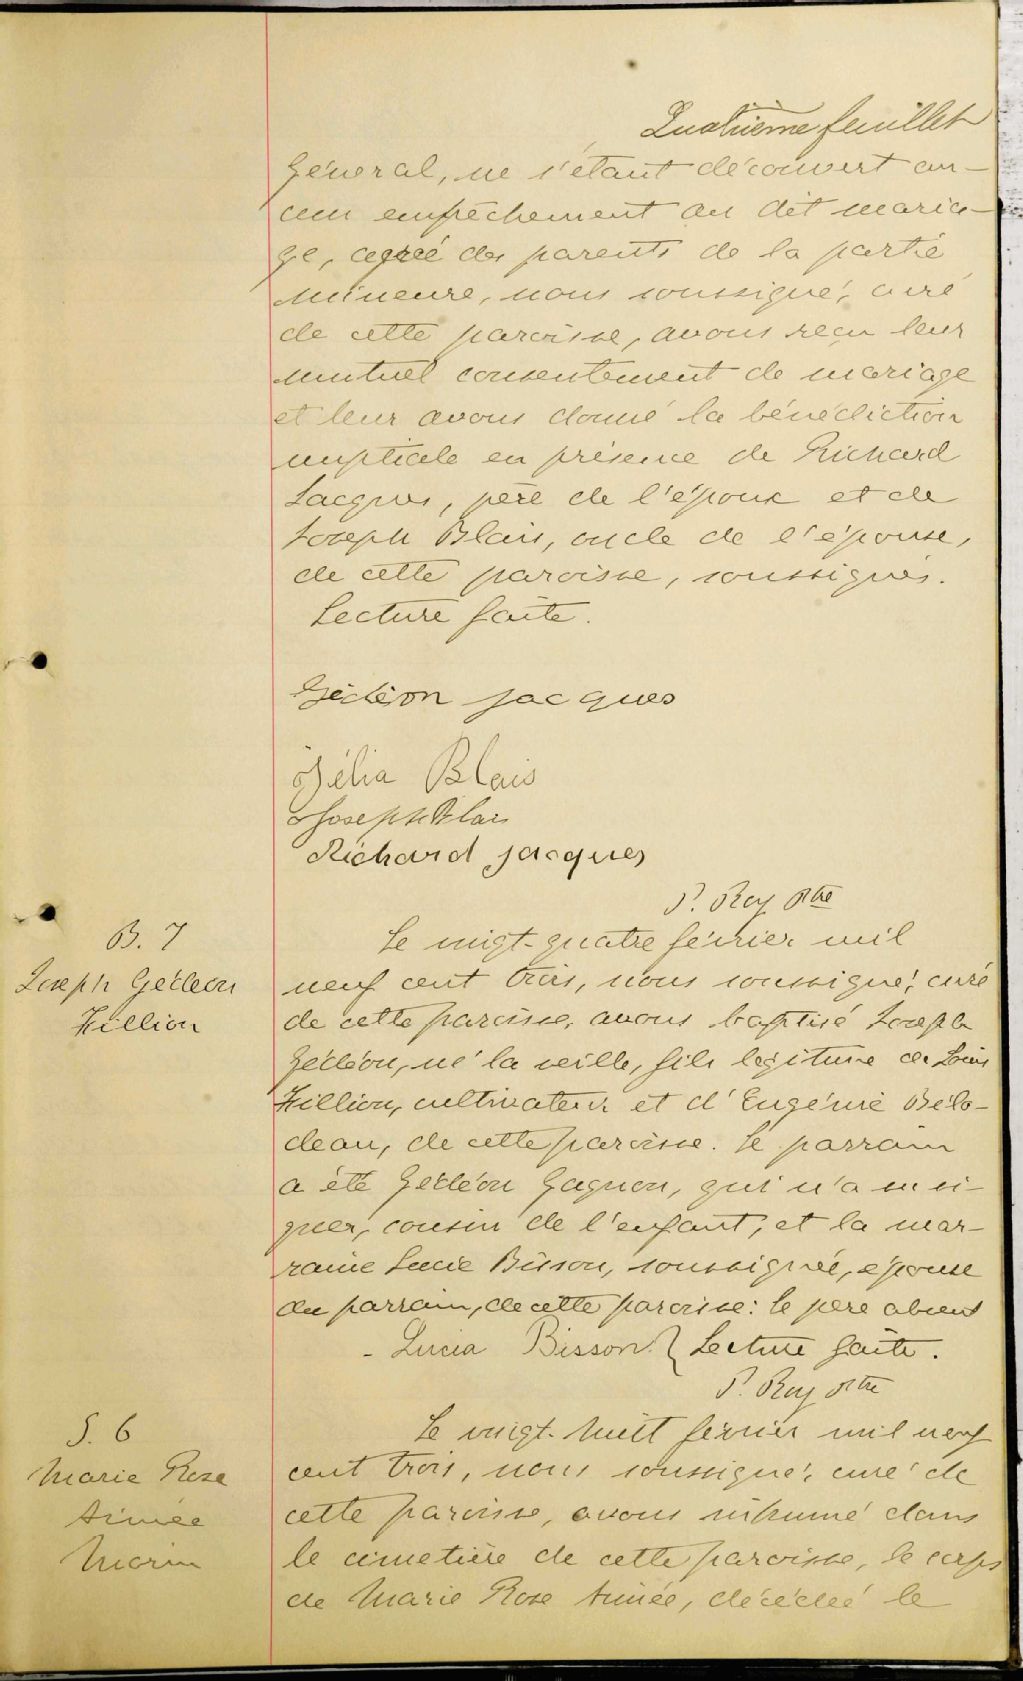 Quatrième feuillet
Général, ne s'étant découvert au-
cun empêchement au dit maria-
ge, agréé des parents de la partie
mineure, nous soussigné, curé
de cette paroisse, avons reçu leur
mutuel consentement de mariage
et leur avons donné la bénédiction
nuptiale en présence de Richard
Jacques, père de l'époux et de
Joseph Blais, oncle de l'épouse,
de cette paroisse, soussignés.
Lecture faite.
Gédéon Jacques
Zélia Blais
Joseph Blais
Richard Jacques
P. Roy Ptre
B. 7
Joseph Gédéon
Fillion
Le vingt-quatre février mil
neuf cent trois, nous soussigné, curé
de cette paroisse, avons baptisé Joseph
Gédéon, né la veille, fils légitime de Louis
Fillion, cultivateur et d'Eugénie Bélo-
deau, de cette paroisse. Le parrain
a été Gédéon Gagnon, qui n'a su si-
gner, cousin de l'enfant, et la mar-
raine Lucie Bisson, soussignée, épouse
du parrain, de cette paroisse: le père absent
- Lucia Bisson. } Lecture faite.
P. Roy Ptre
S. 6
Marie Rose
Aimée
Morin
Le vingt-huit février mil neuf
cent trois, nous soussigné, curé de
cette paroisse, avons inhumé dans
le cimetière de cette paroisse, le corps
de Marie Rose Aimée, décédée le